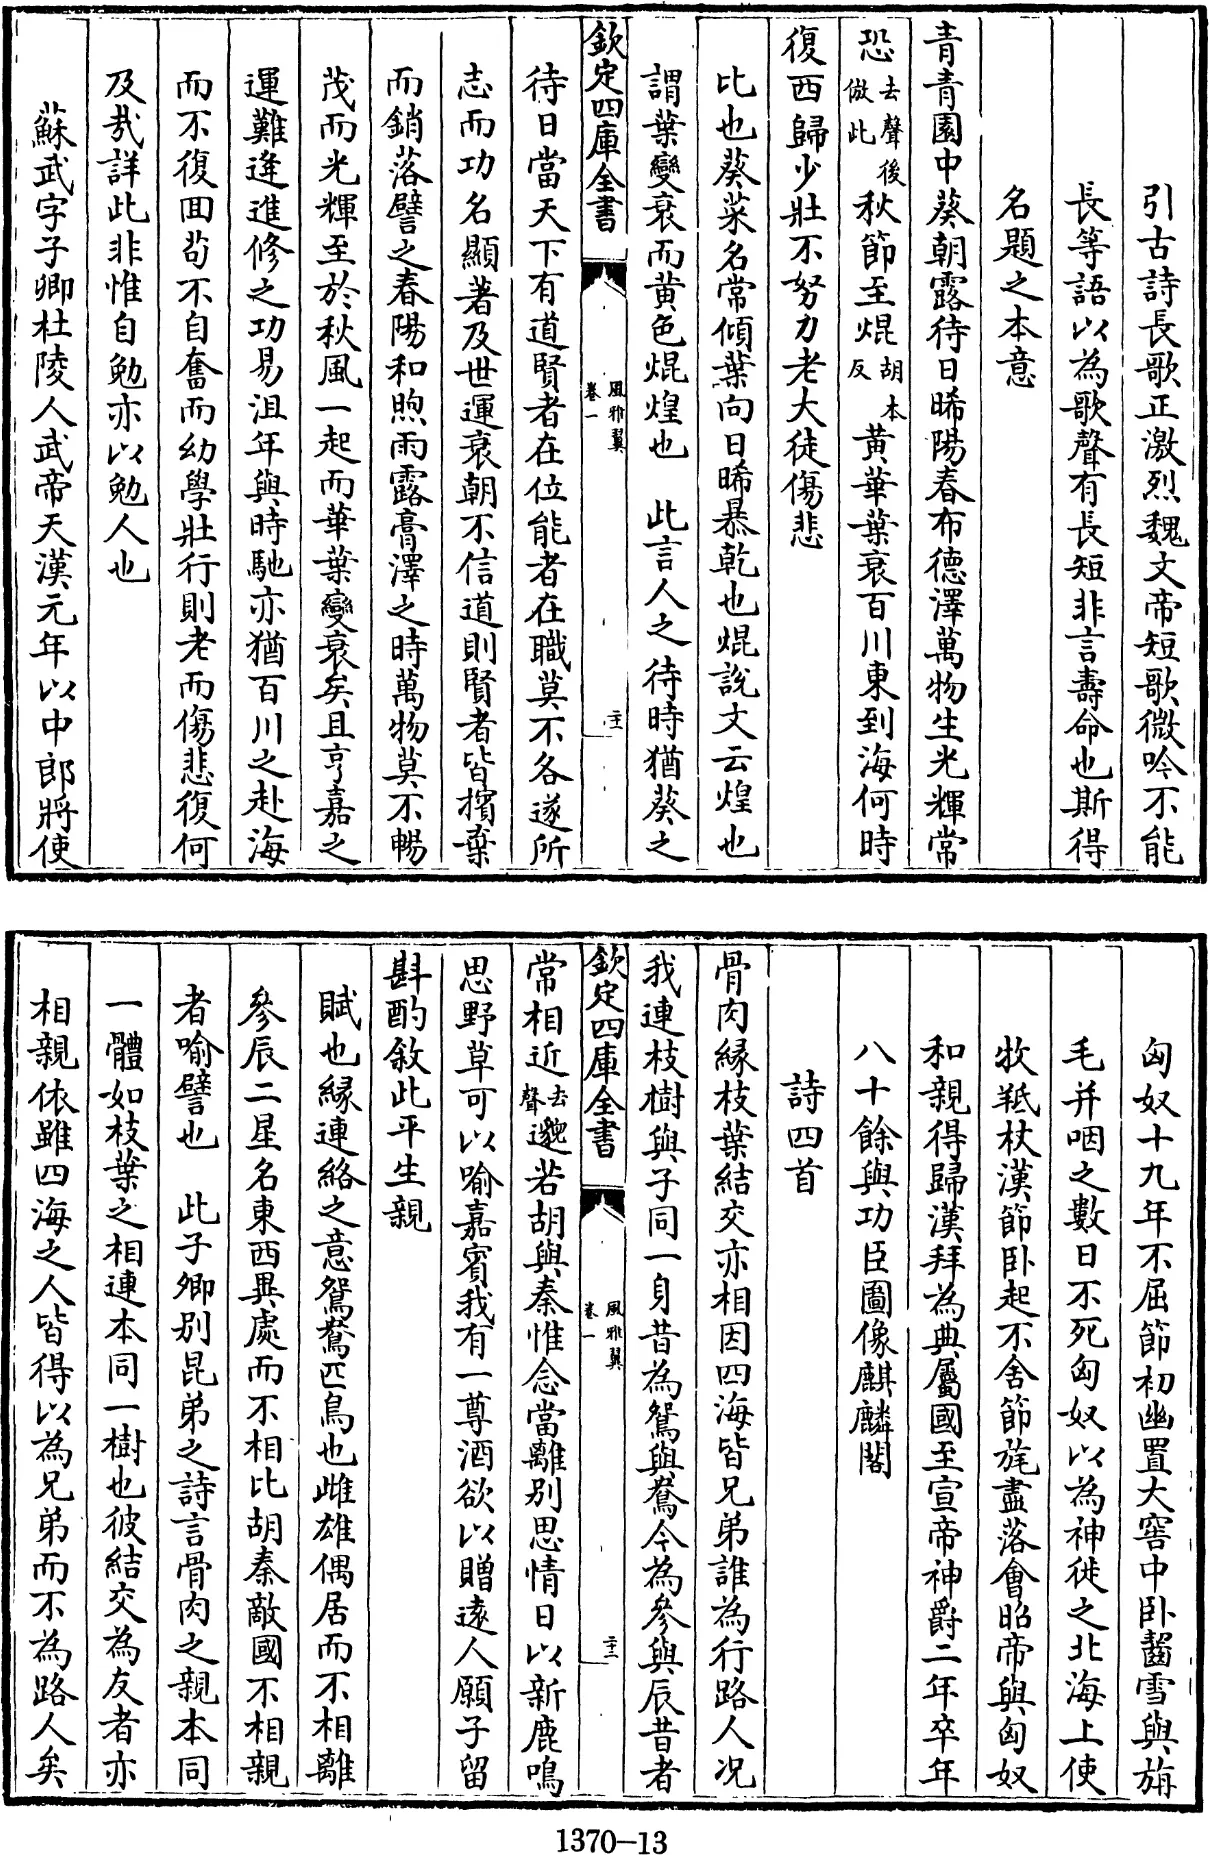 引古詩長歌正激烈魏文帝短歌微吟不能
長等語以為歌聲有長短非言壽命也斯得
名題之本意
青青園中葵朝露待日晞陽春布德澤萬物生光輝常
恐去聲後倣此秋節至焜胡本反黄華葉衰百川東到海何時
復西歸少壯不努力老大徒傷悲
比也葵菜名常傾葉向日晞暴乾也焜説文云煌也
謂葉變衰而黄色焜煌也　此言人之待時猶葵之
欽定四庫全書
風雅翼
卷一
二十二
待日當天下有道賢者在位能者在職莫不各遂所
志而功名顯著及世運衰朝不信道則賢者皆擯棄
而銷落譬之春陽和煦雨露膏澤之時萬物莫不暢
茂而光輝至於秋風一起而華葉變衰矣且亨嘉之
運難逢進修之功易沮年與時馳亦猶百川之赴海
而不復囬茍不自奮而幼學壯行則老而傷悲復何
及哉詳此非惟自勉亦以勉人也
蘇武字子卿杜陵人武帝天漢元年以中郎將使
匈奴十九年不屈節初幽置大窖中卧齧雪與旃
毛并咽之數日不死匈奴以為神徙之北海上使
牧羝杖漢節卧起不舍節旄盡落會昭帝與匈奴
和親得歸漢拜為典屬國至宣帝神爵二年卒年
八十餘與功臣圖像麒麟閣
詩四首
骨肉縁枝葉結交亦相因四海皆兄弟誰為行路人况
我連枝樹與子同一身昔為鴛與鴦今為參與辰昔者
欽定四庫全書
風雅翼
卷一
二十三
常相近去聲邈若胡與秦惟念當離别思情日以新鹿鳴
思野草可以喻嘉賓我有一尊酒欲以贈遠人願子留
斟酌敘此平生親
賦也縁連絡之意鴛鴦匹鳥也雌雄偶居而不相離
參辰二星名東西異處而不相比胡秦敵國不相親
者喻譬也　此子卿别昆弟之詩言骨肉之親本同
一體如枝葉之相連本同一樹也彼結交為友者亦
相親依雖四海之人皆得以為兄弟而不為路人矣
1370-13